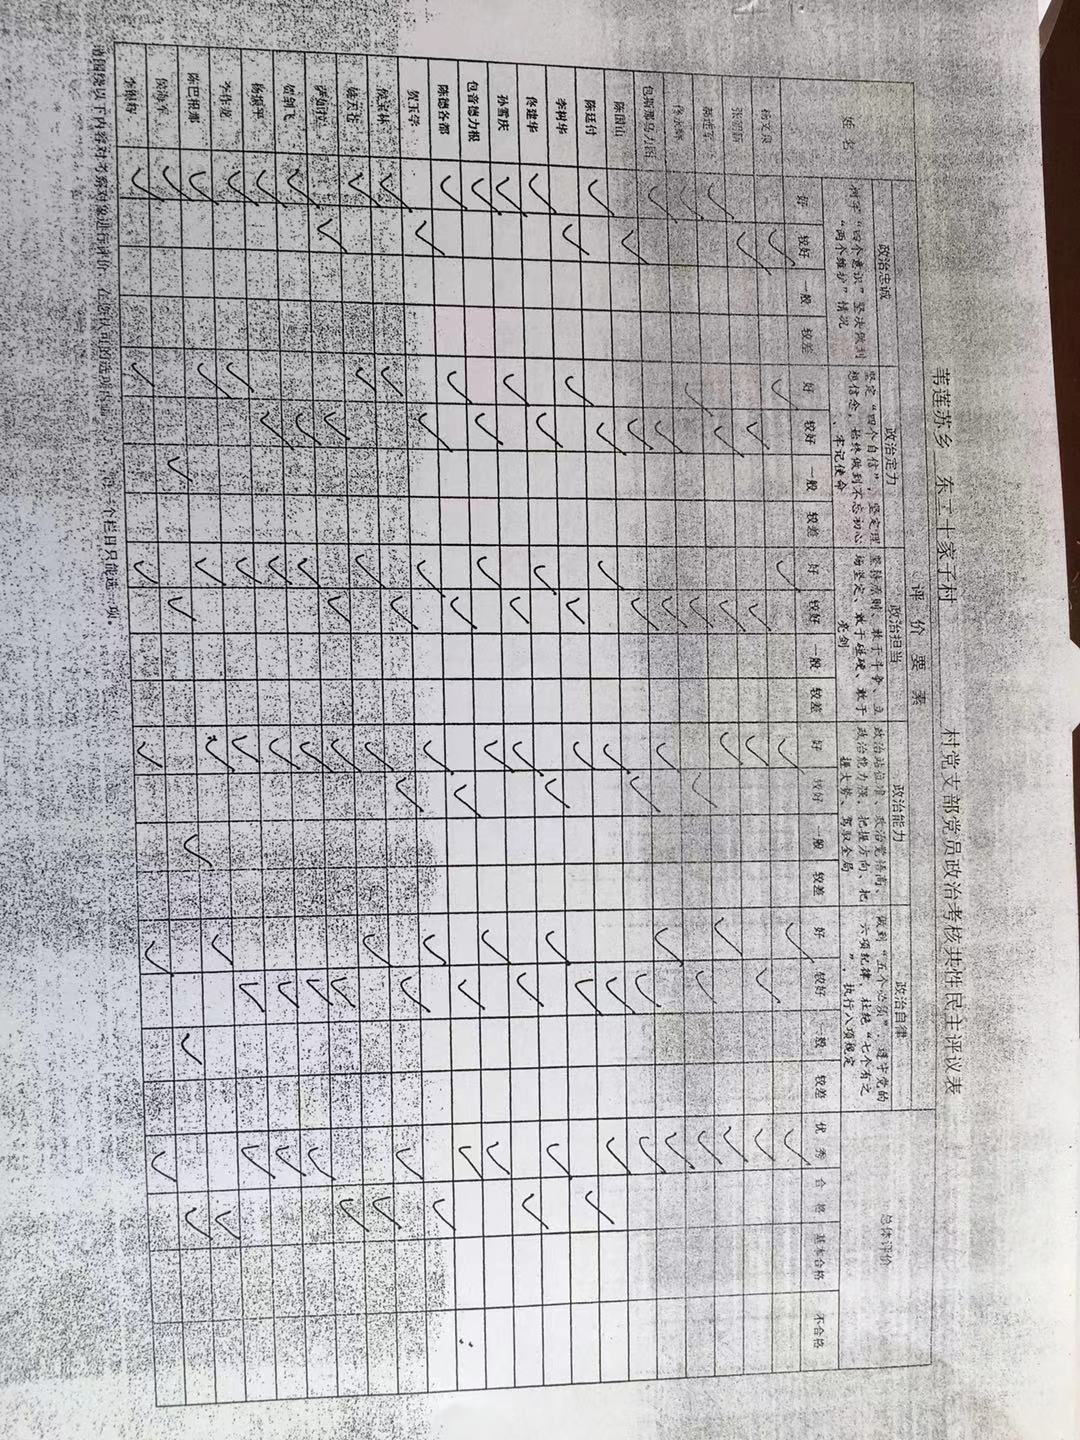 苇莲苏乡 东丁土家子村 村党支部党员政治考核共性民主评议表
姓名 评价要素 总体评价
政治忠诚 政治定力 政治担当 政治能力 政治自律
树牢“四个意识”坚决做到“两个维护”情况
坚定“四个自信”，坚定理想信念，始终做到不忘初心、牢记使命
坚持原则、敢于斗争、立场坚定、敢于碰硬、敢于亮剑
政治站位准、政治觉悟高、政治能力强，把握方向、把握大势、驾驭全局
做到“五个必须”，遵守党的六项纪律，杜绝“七个有之”，执行八项规定
好 较好 一般 较差 好 较好 一般 较差 好 较好 一般 较差 好 较好 一般 较差 好 较好 一般 较差 优秀 合格 基本合格 不合格
杨文泉
陈国山
陈廷付
李树华
佟建华
孙雪庆
包音德力根
陈德各都
贺玉学
侯宝林
贺剑飞
杨振平
李作龙
陈巴根那
侯海军
请围绕以下内容对考察对象进行评价，在您认可的选项内画“√”，每一个栏目只能选一项。